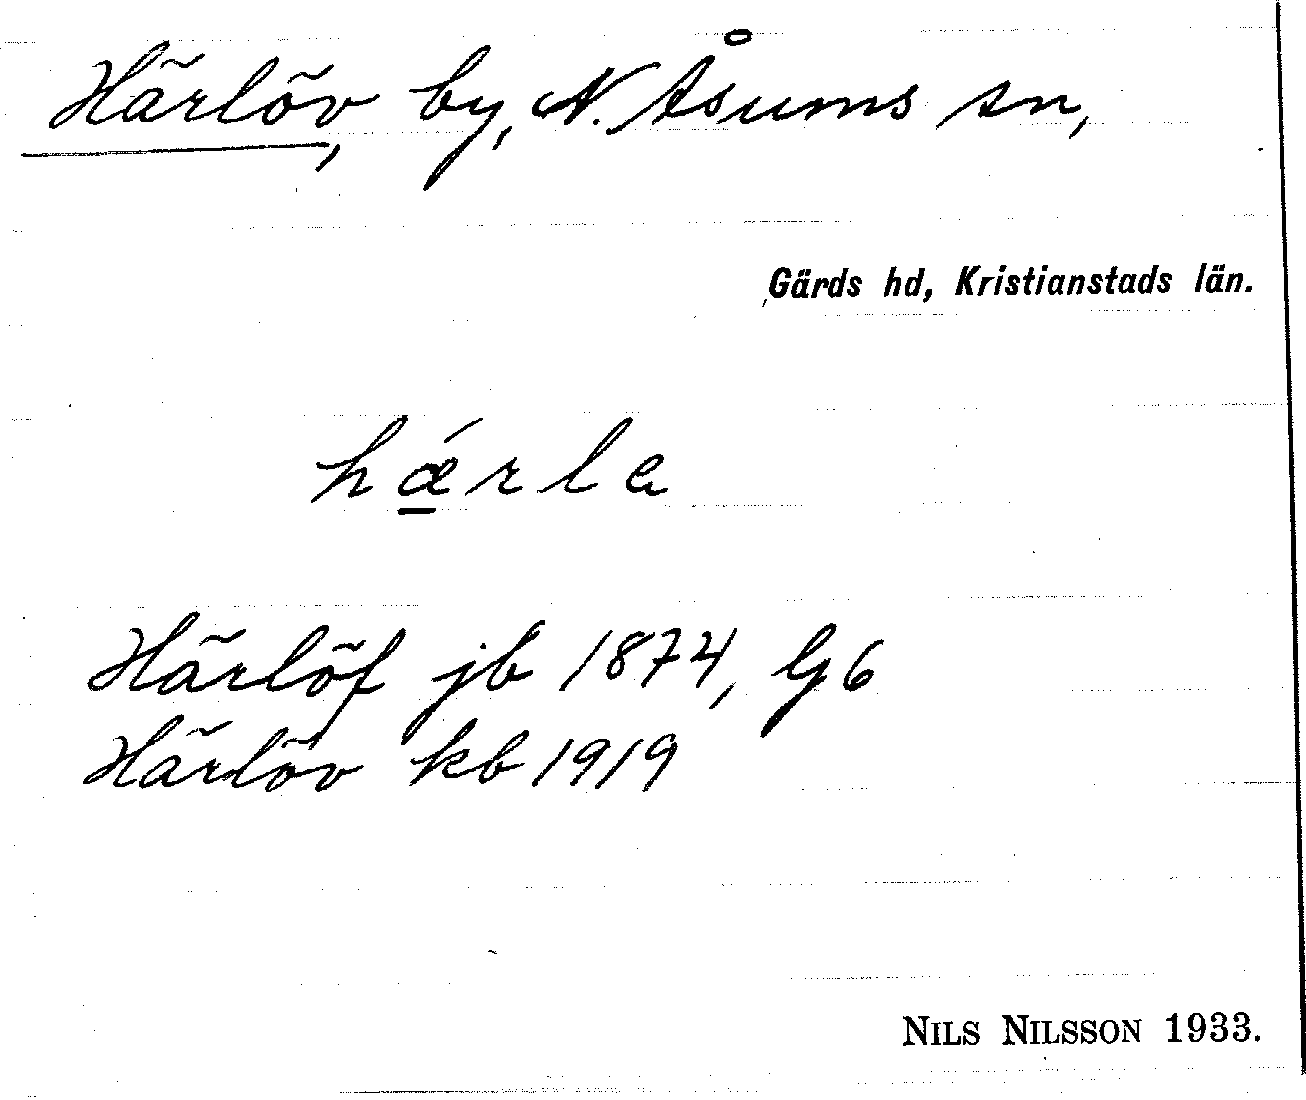 Härlöv, by, N. Åsums sn,
Gärds hd, Kristianstads län.
hǽ̱rla
Härlöf jb 1874, G6
Härlöv kb 1919
NILS NILSSON 1933.